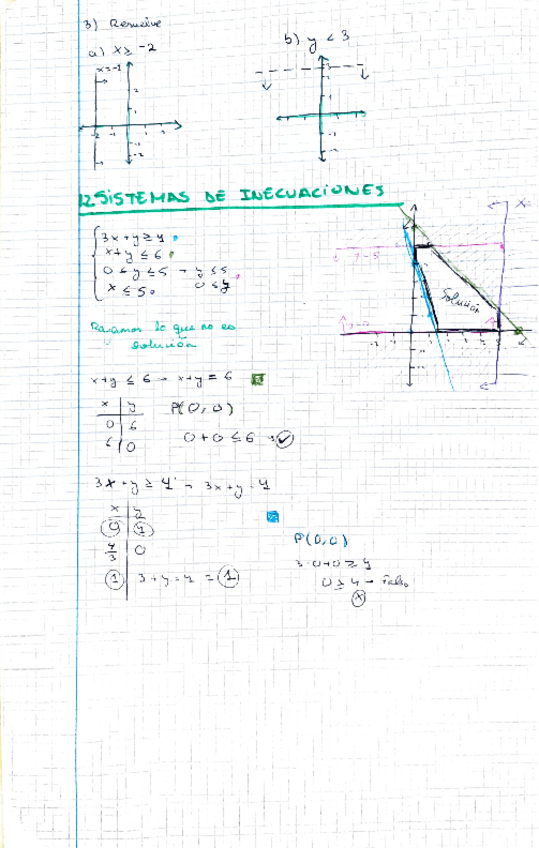 3) Resuelve
a) x ≥ -2
b) y < 3
12. SISTEMAS DE INECUACIONES
3x + y ≥ 4
x + y ≤ 6
0 ≤ y ≤ 5 → y ≤ 5
0 ≤ y
x ≤ 5
Rayamos lo que no es
solución
Solución
x + y ≤ 6 → x + y = 6
x y
0 6
6 0
P(0,0)
0 + 0 ≤ 6 → ✓
3x + y ≥ 4 → 3x + y = 4
x y
0 4
4/3 0
1 3 + y = 4 = 1
P(0,0)
3·0+0 ≥ 4
0 ≥ 4 → Falso
x